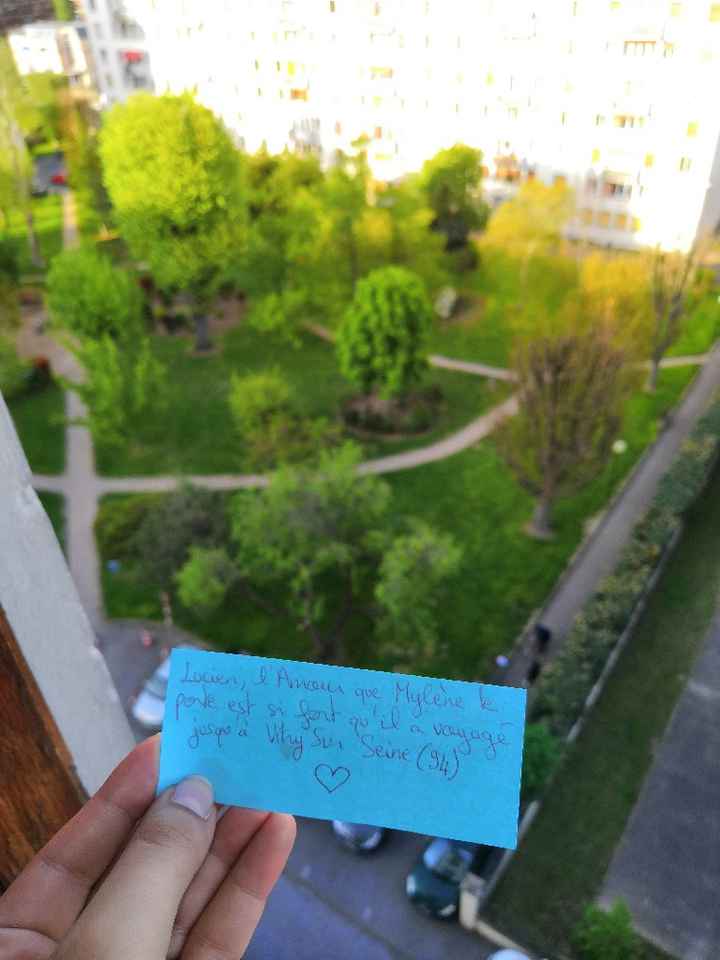 Lucien, l'Amour que Mylène te
porte est si fort qu'il a voyagé
jusqu'à Vitry Sur Seine (94)